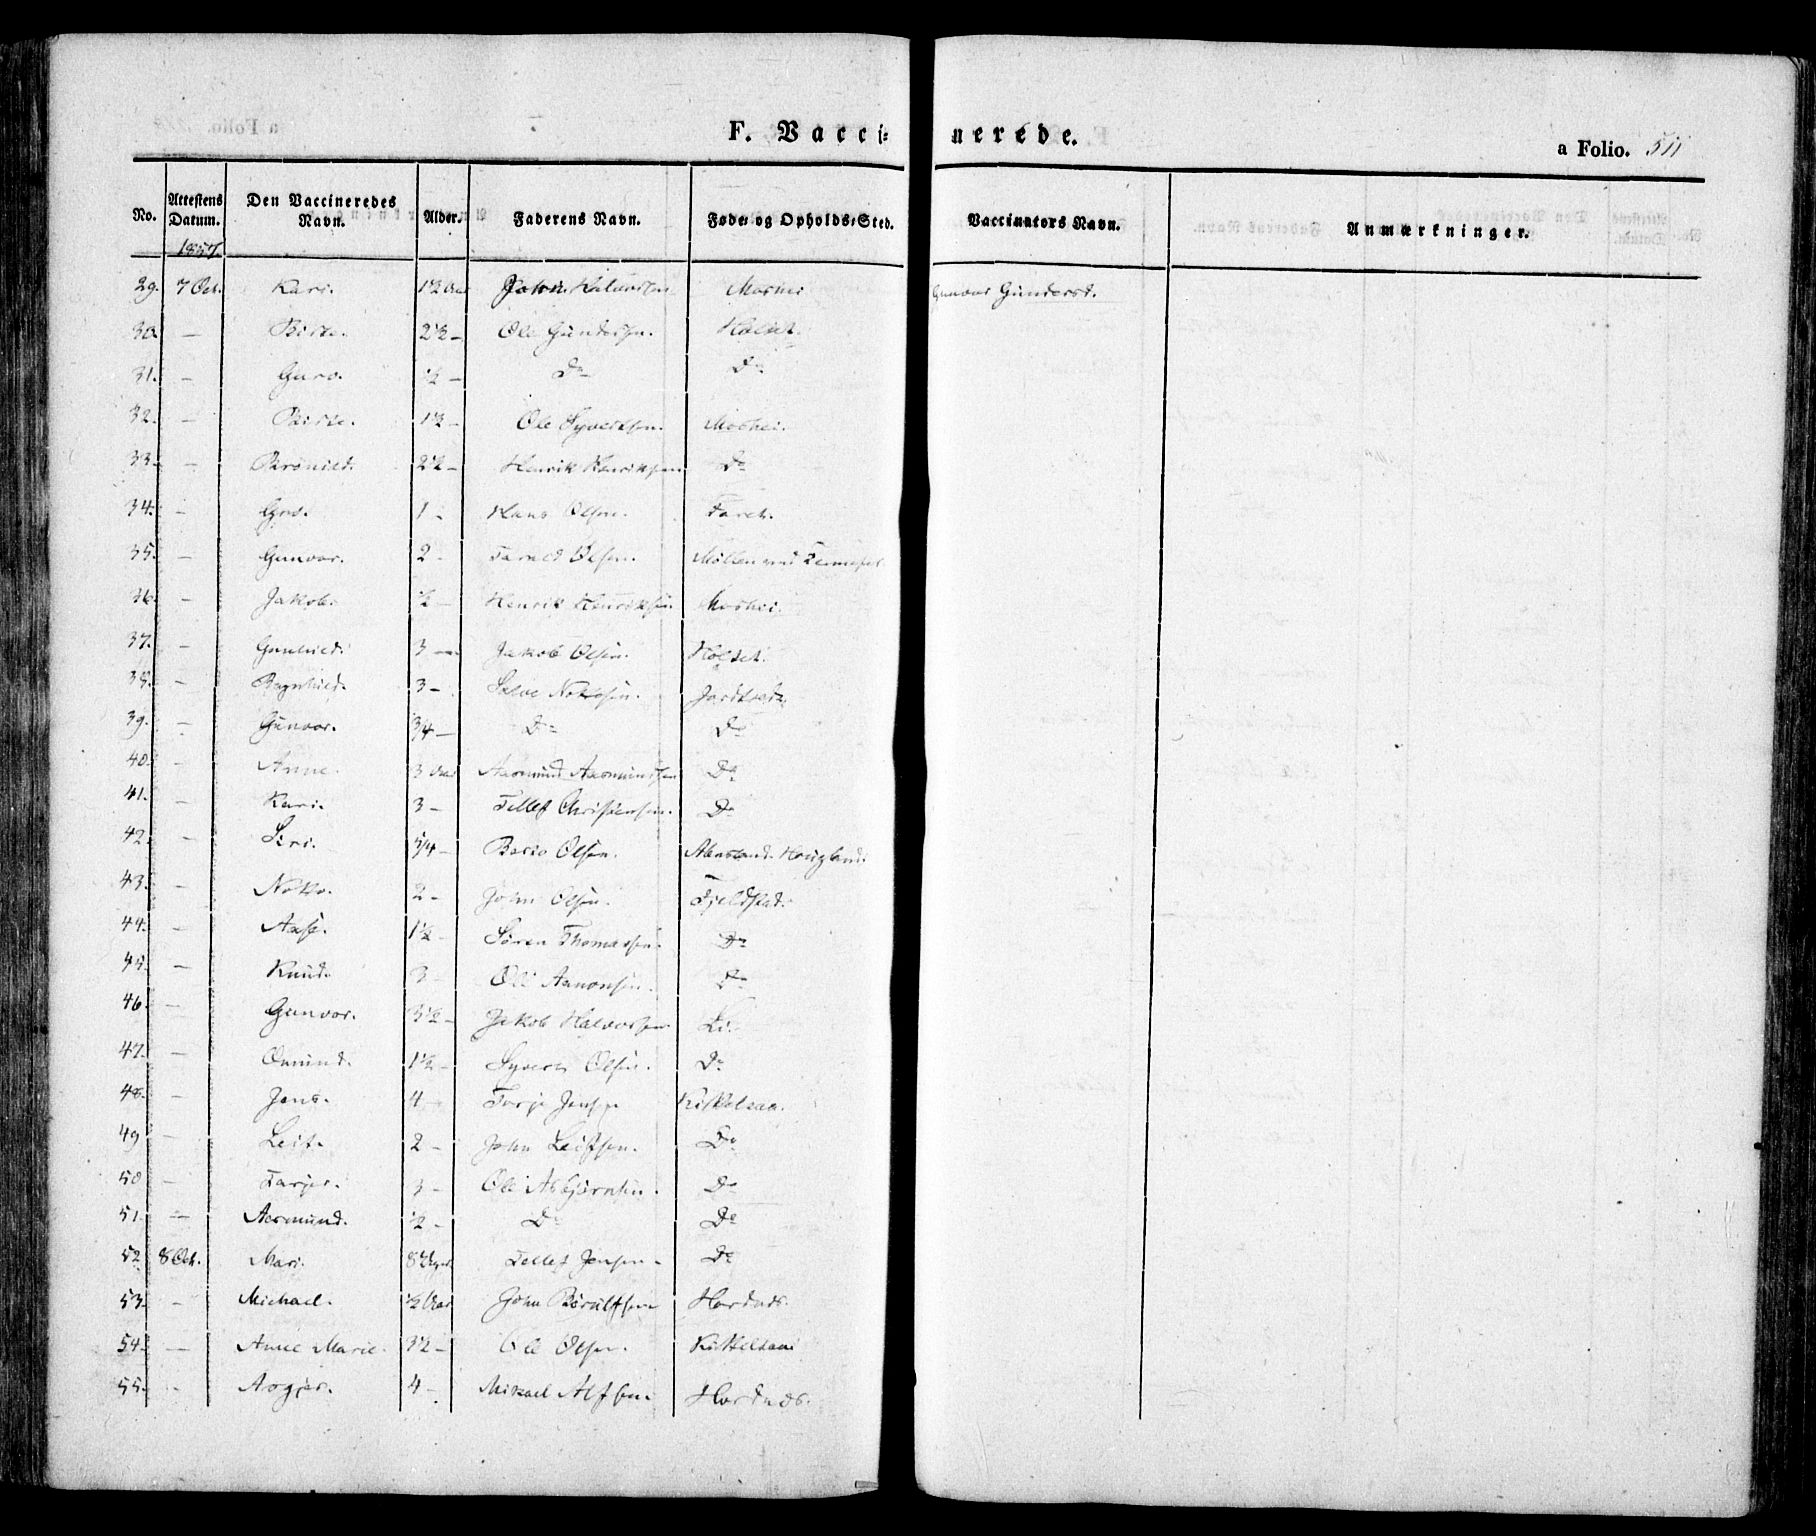 F. Vaccinerede.
a Folio. 511
No. Attestens Datum. Den Vaccineredes Navn. Alder. Faderens Navn. Føde og Opholds-Sted. Vaccinators Navn. Anmærkninger.
1857.
29. 7 Oct. Kari. 1½ Aar Gunvor Gundersd.
30. — Birte. 2½ — Ole Gundersen. Holset.
31. — Guro. ½ — Do Do
32. — Birte. 1½ — Ole Syvertsen. Moshei.
33. — 2½ — Henrik Henriksen Do
34. — Gro. 1 — Hans Olsen. Faret.
35. — Gunvor. 2 — Olsen. Møllen ved
36. — Jakob. ½ — Henrik Henriksen. Moshei.
37. — Gunhild. 3 — Jakob Olsen. Holset.
38. — Ragnhild. 3 — Salve
39. — Gunvor. 3/4 — Do Do
40. — Anne. 3 Aar Aasmund Aasmundsen Do
41. — Kari. 3 — Tellef Christensen. Do
42. — Siri. 5/4 — Olsen. Hougland.
43. — 2 — John Olsen. Fjeldstad.
44. — Aase. 1½ — Søren Thomassen. Do
45. — Knud. 3 — Ole Aanonsen. Do
46. — Gunvor. 3½ — Jakob Halvorsen. Li.
47. — Omund. 1½ — Syvert Olsen. Do
48. — Jens. 4 — Terje Jensen Kittelsaa.
49 — Leif. 2 — John Leifsen. Do
50 — Tarjer. 3 — Ole Asbjørnsen. Do
51. — Aasmund. ½ — Do Do
52 8 Oct. Mari. 8 Uger Tellef Jensen. Do
53. — Michael. ½ Aar John Hordnes.
54. — Anne Marie. 3½ — Ole Olsen.
55. — 4 — Mikael Alfsen. Hordnes.